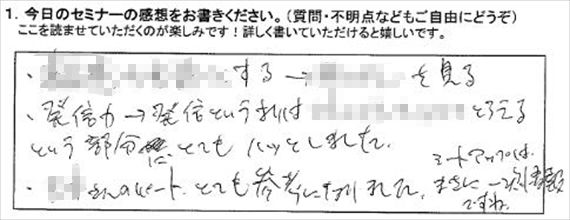 1. 今日のセミナーの感想をお書きください。（質問・不明点などもご自由にどうぞ）
ここを読ませていただくのが楽しみです！詳しく書いていただけると嬉しいです。
・ する → を見る
・発信力→発信というよりは とらえる
という部分に、とてもハッとしました。
・ さんのパート、とても参考になりました。
ミートアップは、
まさに一次情報
ですね。